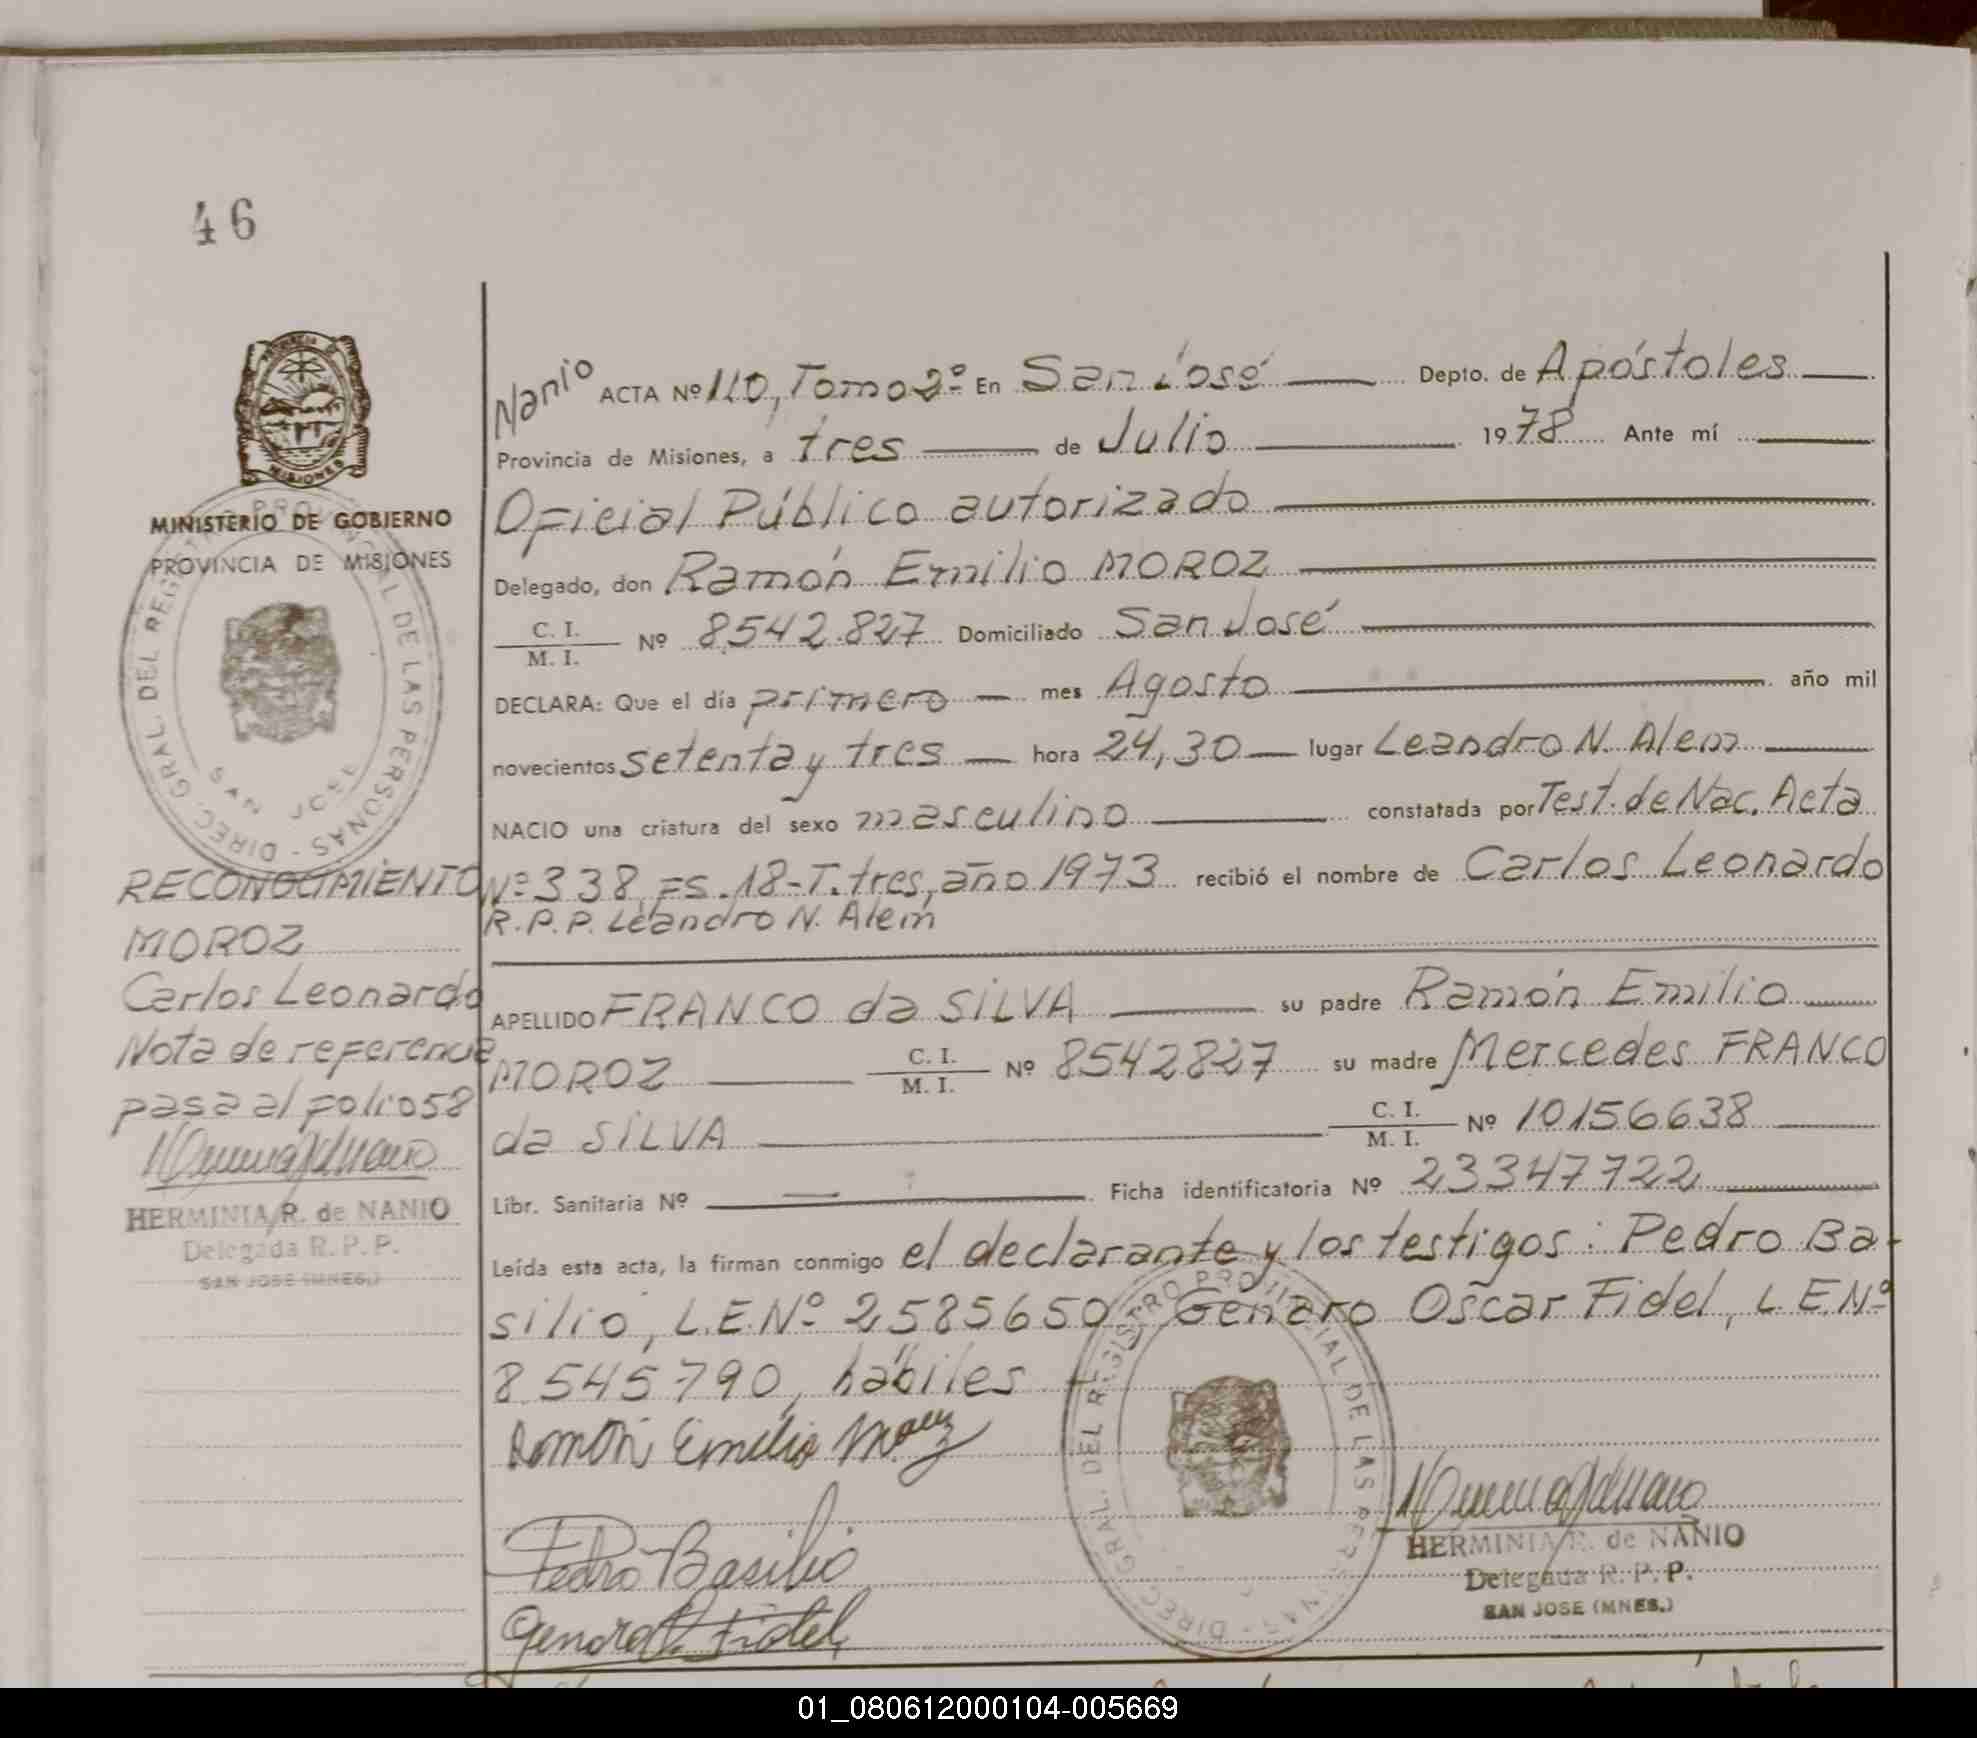 46
Nanio
ACTA Nº 110, Tomo 2º En San José Depto. de Apóstoles
Provincia de Misiones, a tres de Julio 1978 Ante mí
Oficial Público autorizado
Delegado, don Ramón Emilio MOROZ
C. I.
M. I. Nº 8.542.827 Domiciliado San José
DECLARA: Que el día primero mes Agosto año mil
novecientos setenta y tres hora 24,30 lugar Leandro N. Alem
NACIO una criatura del sexo masculino constatada por Test. de Nac. Acta
Nº 338, Fs. 18-T. tres, año 1973 recibió el nombre de Carlos Leonardo
R.P.P. Leandro N. Alem
APELLIDO FRANCO da SILVA su padre Ramón Emilio
MOROZ C. I.
M. I. Nº 8542827 su madre Mercedes FRANCO
da SILVA C. I.
M. I. Nº 10156638
Libr. Sanitaria Nº — Ficha identificatoria Nº 23347722
Leída esta acta, la firman conmigo el declarante y los testigos: Pedro Ba-
silio, L.E.Nº 2585650, Genaro Oscar Fidel, L.E.Nº
8.545.790, hábiles
Ramón Emilio Moroz
Pedro Basilio
Genaro O. Fidel
HERMINIA R. de NANIO
Delegada R. P. P.
SAN JOSE (MNES.)
DIREC. GRAL. DEL REGISTRO PROVINCIAL DE LAS PERSONAS
MISIONES
MINISTERIO DE GOBIERNO
PROVINCIA DE MISIONES
DIREC. GRAL. DEL REGISTRO PROVINCIAL DE LAS PERSONAS
SAN JOSE
RECONOCIMIENTO
MOROZ
Carlos Leonardo
Nota de referencia
pasa al folio 58
HERMINIA R. de NANIO
Delegada R. P. P.
SAN JOSE (MNES.)
01_080612000104-005669